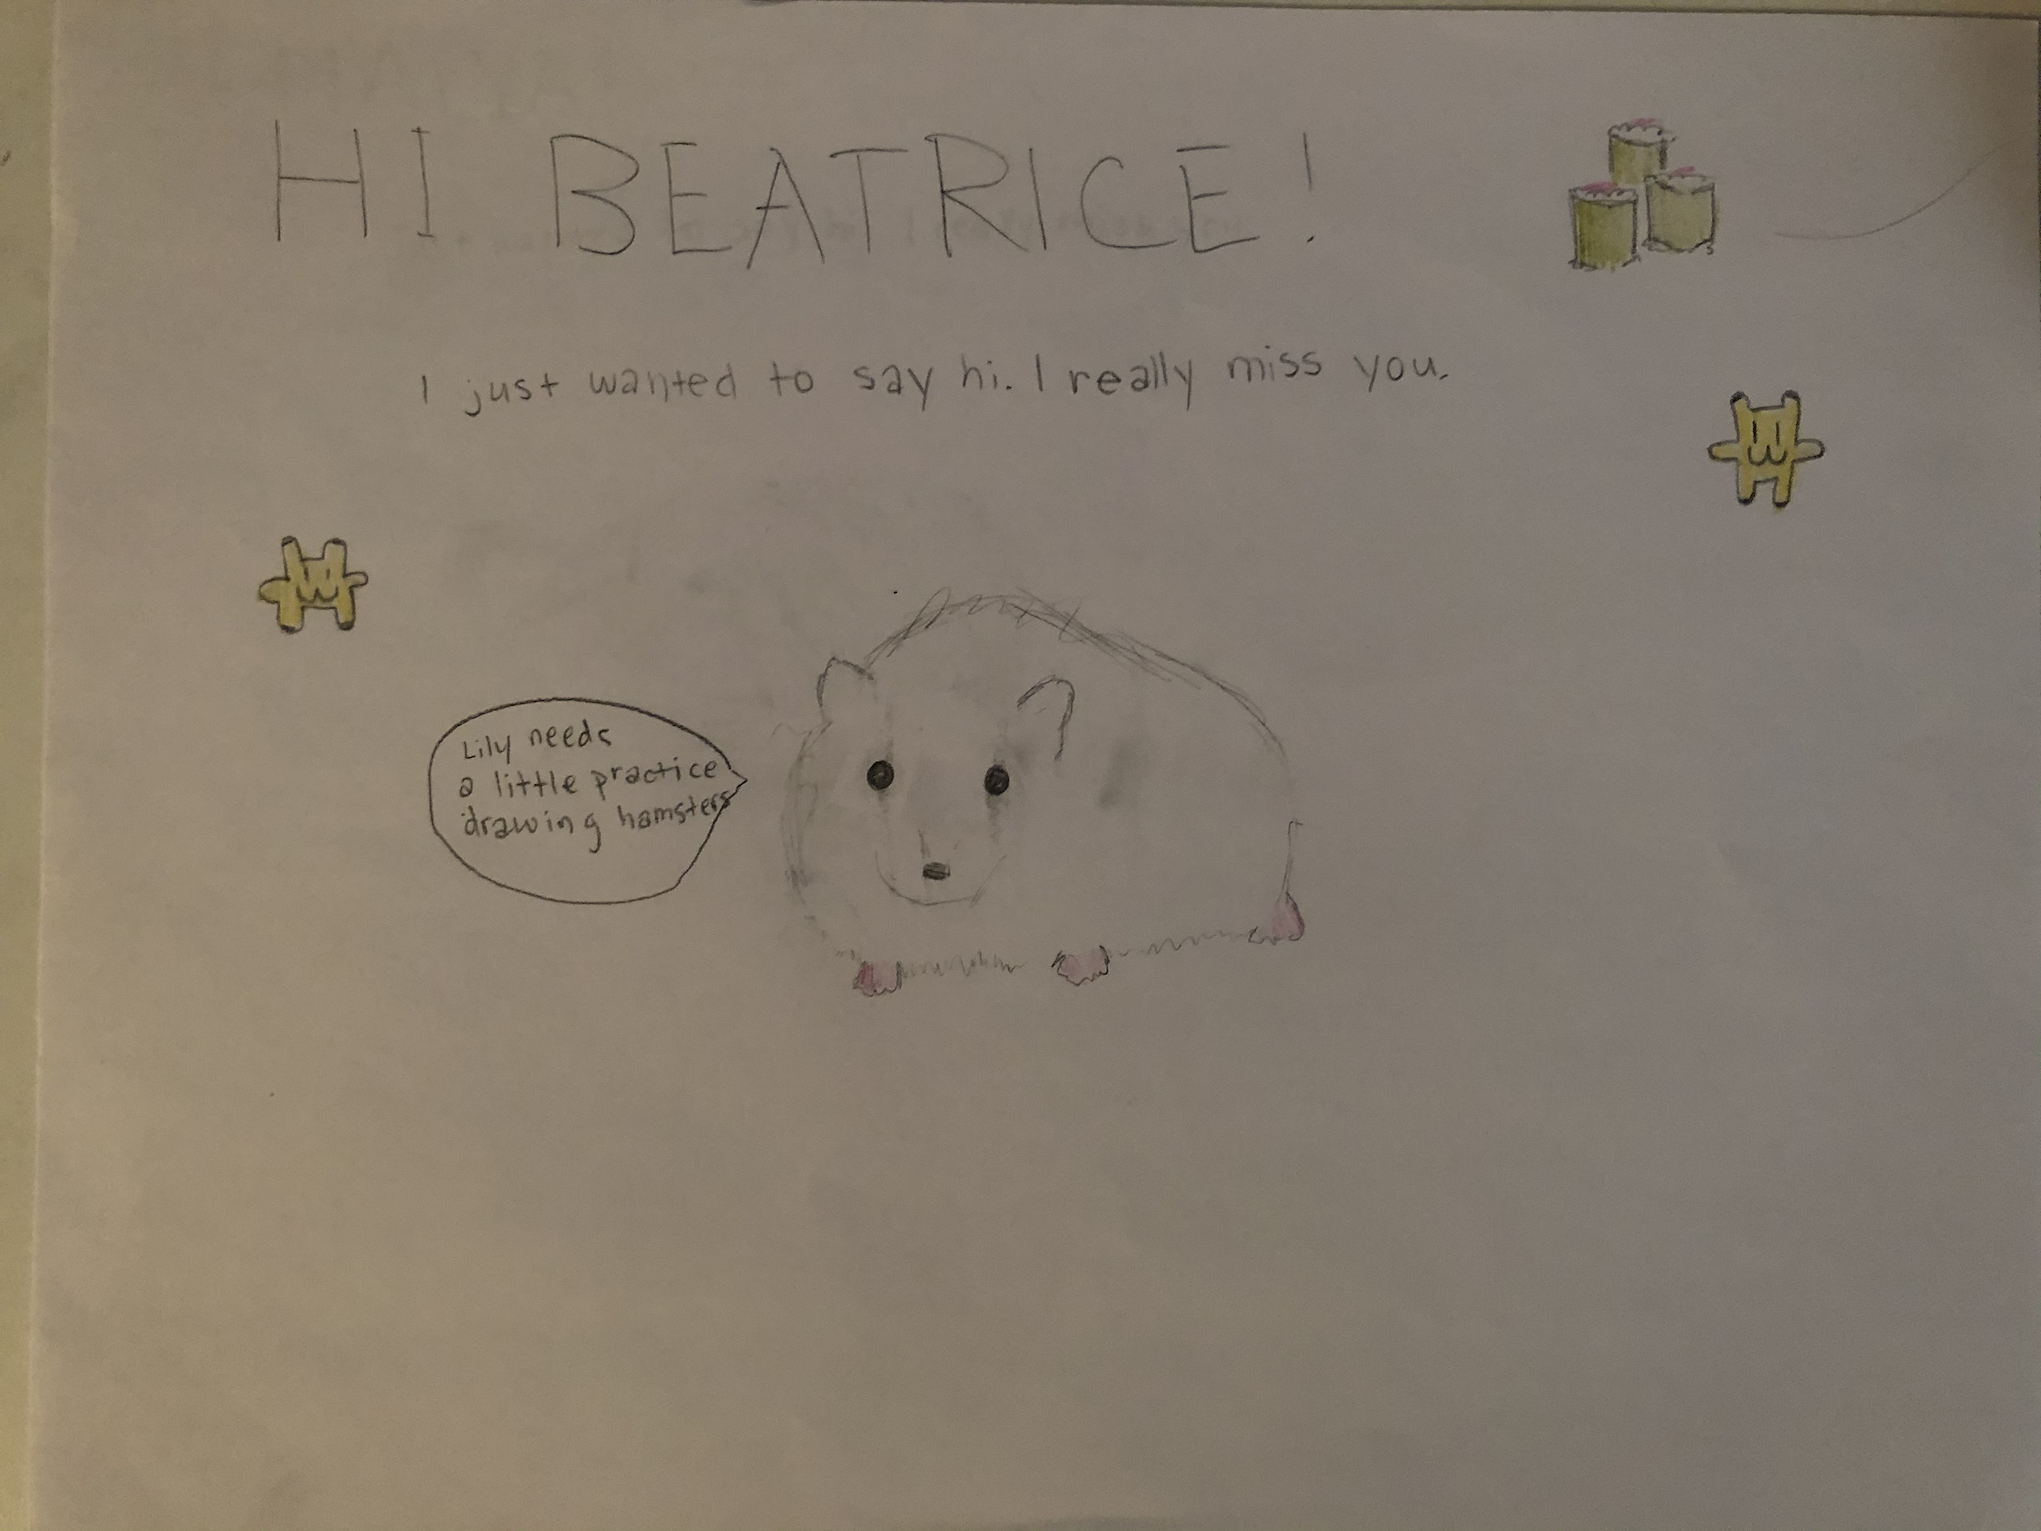 HI BEATRICE!
I just wanted to say hi. I really miss you.
Lily needs
a little practice
drawing hamsters